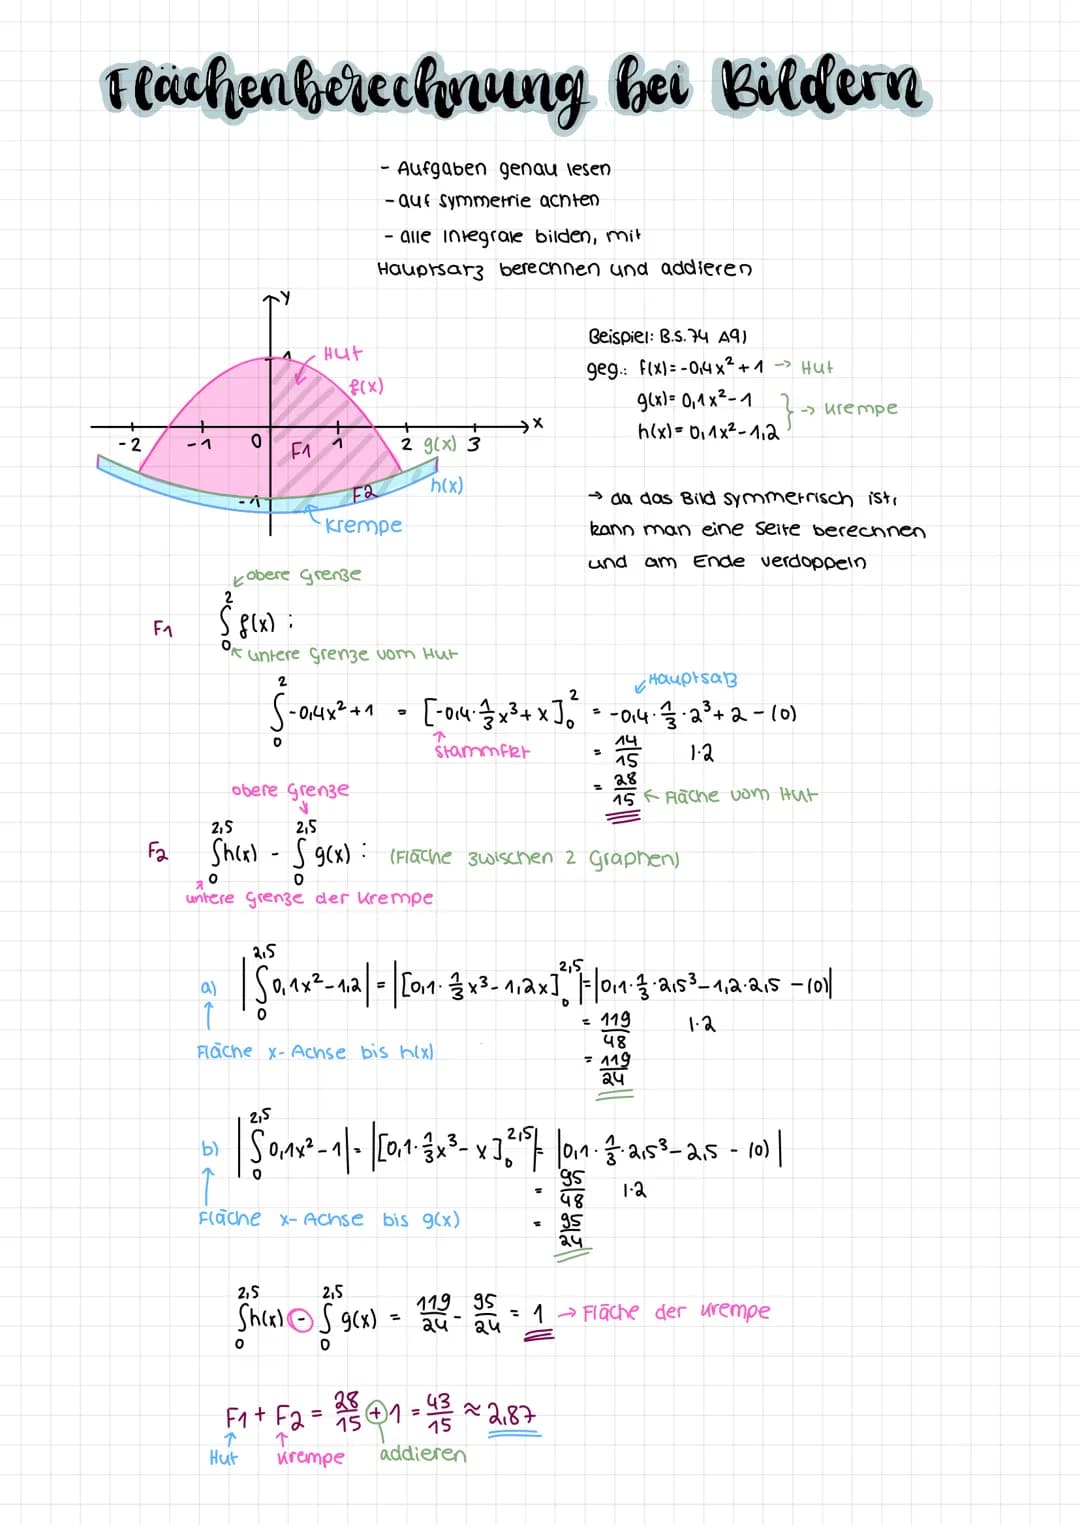 Flächenberechnung bei Bildern
- Aufgaben genau lesen
- auf Symmetrie achten
- alle Integrale bilden, mit
Hauptsatz berechnen und addieren
y
1
Hut
f(x)
x
-2 -1 0 1 2 3
F1
g(x)
h(x)
-1
F2
Krempe
Beispiel: B.S. 74 A9)
geg.: f(x) = -0,4x² + 1 → Hut
g(x) = 0,1x² - 1
h(x) = 0,1x² - 1,2 } → Krempe
→ da das Bild symmetrisch ist,
kann man eine Seite berechnen
und am Ende verdoppeln
obere Grenze
F1 ∫₀² f(x) :
untere Grenze vom Hut
Hauptsatz
∫₀² -0,4x² + 1 = [-0,4 · 1/3 x³ + x]₀² = -0,4 · 1/3 · 2³ + 2 - (0)
Stammfkt
= 14/15 | · 2
= 28/15 ← Fläche vom Hut
obere Grenze
F2 ∫₀^2,5 h(x) - ∫₀^2,5 g(x) : (Fläche zwischen 2 Graphen)
untere Grenze der Krempe
a) |∫₀^2,5 0,1x² - 1,2| = |[0,1 · 1/3 x³ - 1,2x]₀^2,5| = |0,1 · 1/3 · 2,5³ - 1,2 · 2,5 - (0)|
= 119/48 | · 2
Fläche x-Achse bis h(x)
= 119/24
b) |∫₀^2,5 0,1x² - 1| = |[0,1 · 1/3 x³ - x]₀^2,5| = |0,1 · 1/3 · 2,5³ - 2,5 - (0)|
= 95/48 | · 2
Fläche x-Achse bis g(x)
= 95/24
∫₀^2,5 h(x) - ∫₀^2,5 g(x) = 119/24 - 95/24 = 1 → Fläche der Krempe
F1 + F2 = 28/15 + 1 = 43/15 ≈ 2,87
Hut Krempe addieren